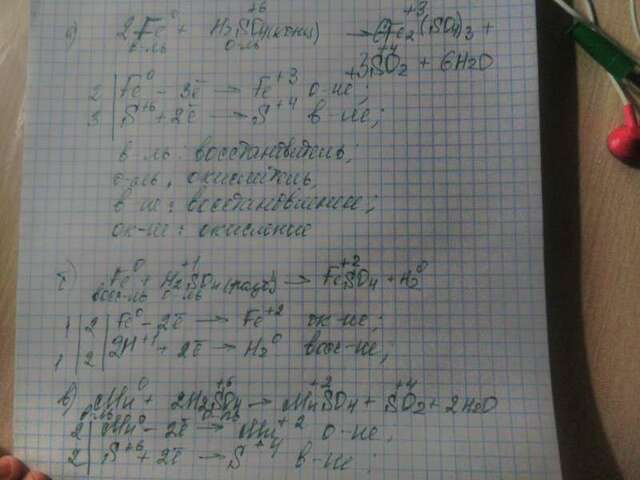 2Fe⁰ + H₂SO₄(конц) → Fe₂⁺³(SO₄)₃ +
в-ль о-ль
+3SO₂ + 6H₂O
2 | Fe⁰ - 3ē → Fe⁺³ о-ие;
3 | S⁺⁶ + 2ē → S⁺⁴ в-ие;
в-ль: восстановитель;
о-ль, окислитель,
в-ие: восстановление;
ок-ие: окисление
Fe⁰ + H₂⁺¹SO₄ → Fe⁺²SO₄ + H₂⁰
восс-ль о-ль
1 | 2 | Fe⁰ - 2ē → Fe⁺² ок-ие;
1 | 2 | 2H⁺¹ + 2ē → H₂⁰ восс-ие;
в) Mn⁰ + 2H₂S⁺⁶O₄ → Mn⁺²SO₄ + S⁺⁴O₂ + 2H₂O
2 | Mn⁰ - 2ē → Mn⁺² о-ие,
2 | S⁺⁶ + 2ē → S⁺⁴ в-ие;